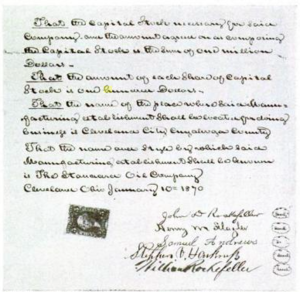 That the Capital Stock necessary for said
Company and the amount agreed on as composing
the Capital Stock is the sum of one million
Dollars.
That the amount of each Share of Capital
Stock is One Hundred Dollars.
That the name of the place where said Manu-
facturing establishment shall be located for doing
business is Cleveland City Cuyahoga County
That the name and style by which said
Manufacturing establishment shall be known
is The Standard Oil Company
Cleveland Ohio January 10th 1870
John D Rockefeller
Henry M Flagler
Samuel Andrews
Stephen V Harkness
William Rockefeller